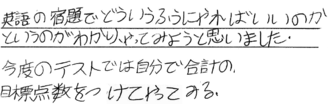 英語の宿題でどういうふうにやればいいのか
というのがわかり、やってみようと思いました。
今度のテストでは自分で合計の、
目標点数をつけてやってみる。